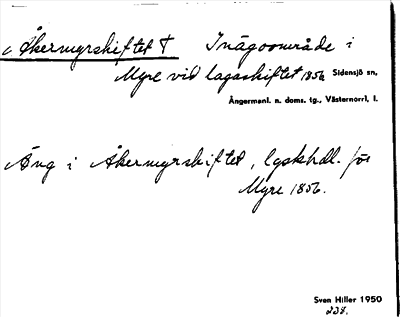 i Åkermyrskiftet † Inägoområde i
Myre vid lagaskiftet 1856 Sidensjö sn,
Ångermanl. n. doms. tg., Västernorrl. l.
Äng i Åkermyrskiftet, lgskhdl. för
Myre 1856.
Sven Hiller 1950
238.